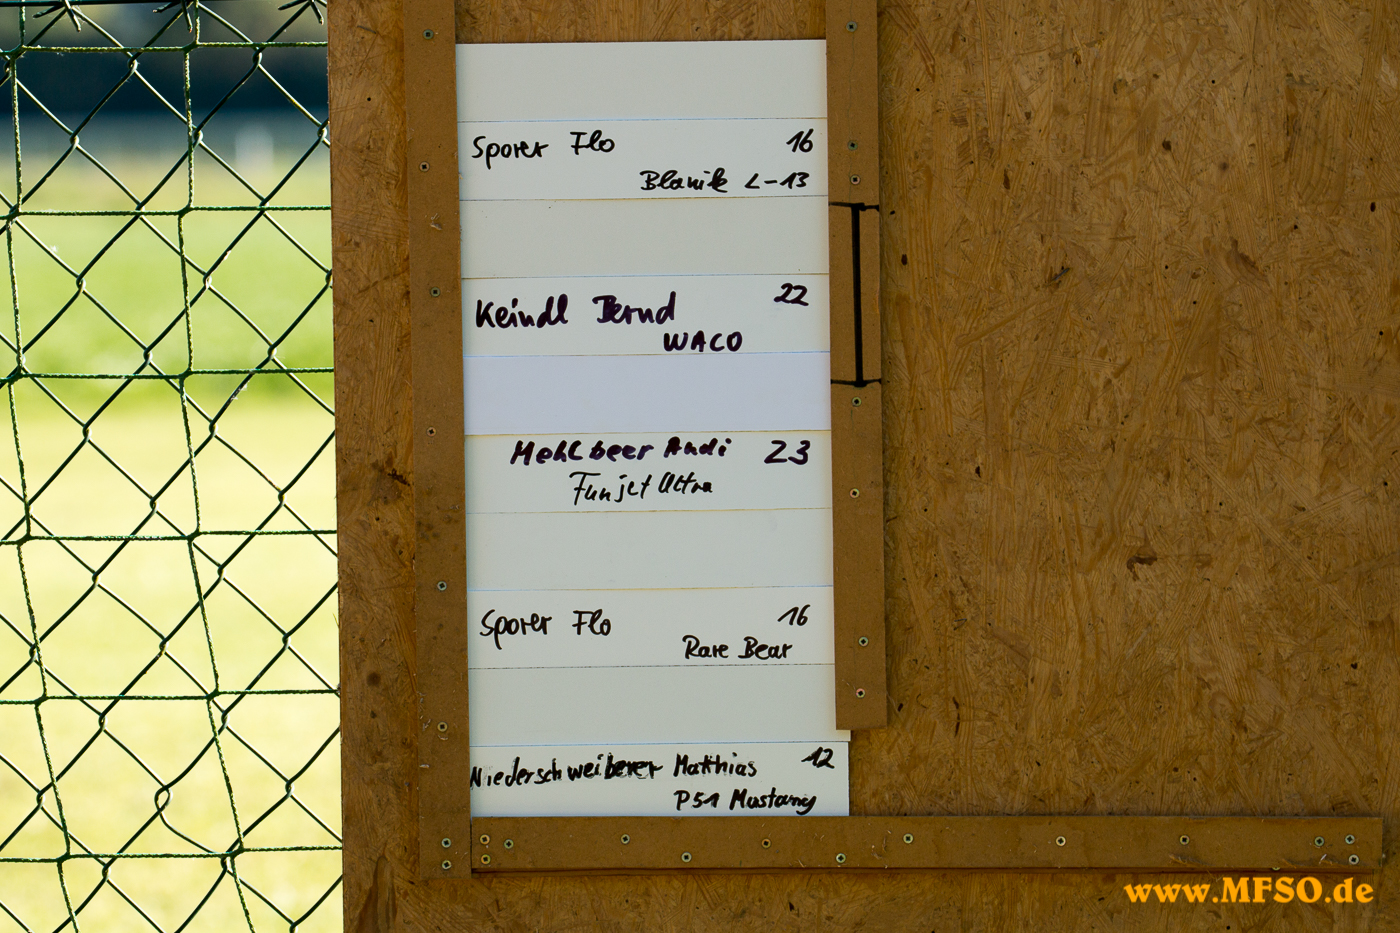 Sporer Flo 16
Blanik L-13
Keindl Bernd 22
WACO
Mehlbeer Andi 23
Funjet Ultra
Sporer Flo 16
Rare Bear
Niederschweiberer Matthias 12
P51 Mustang
www.MFSO.de